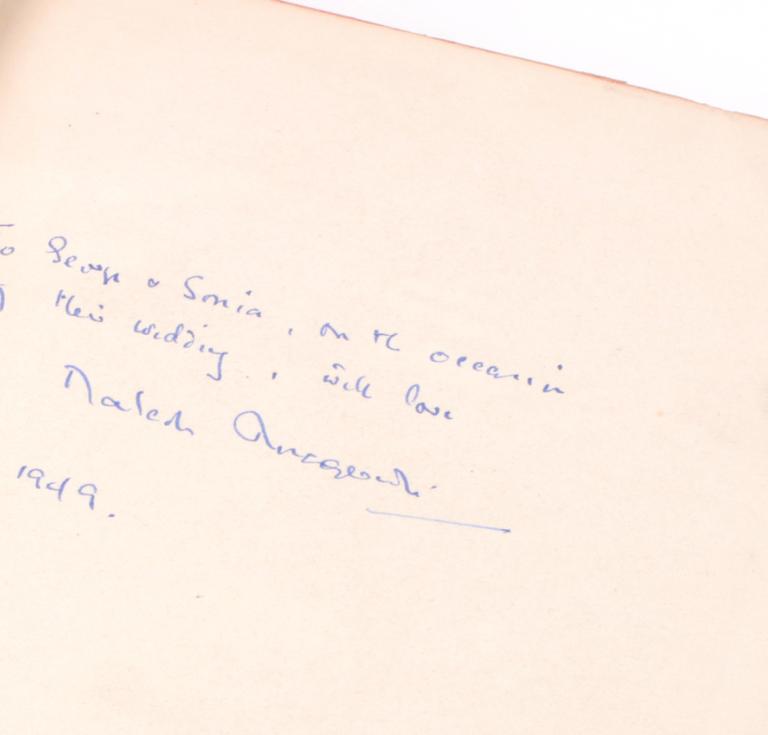 To George & Sonia, on the occasion
of their wedding, with love
Malcolm Muggeridge
1949.